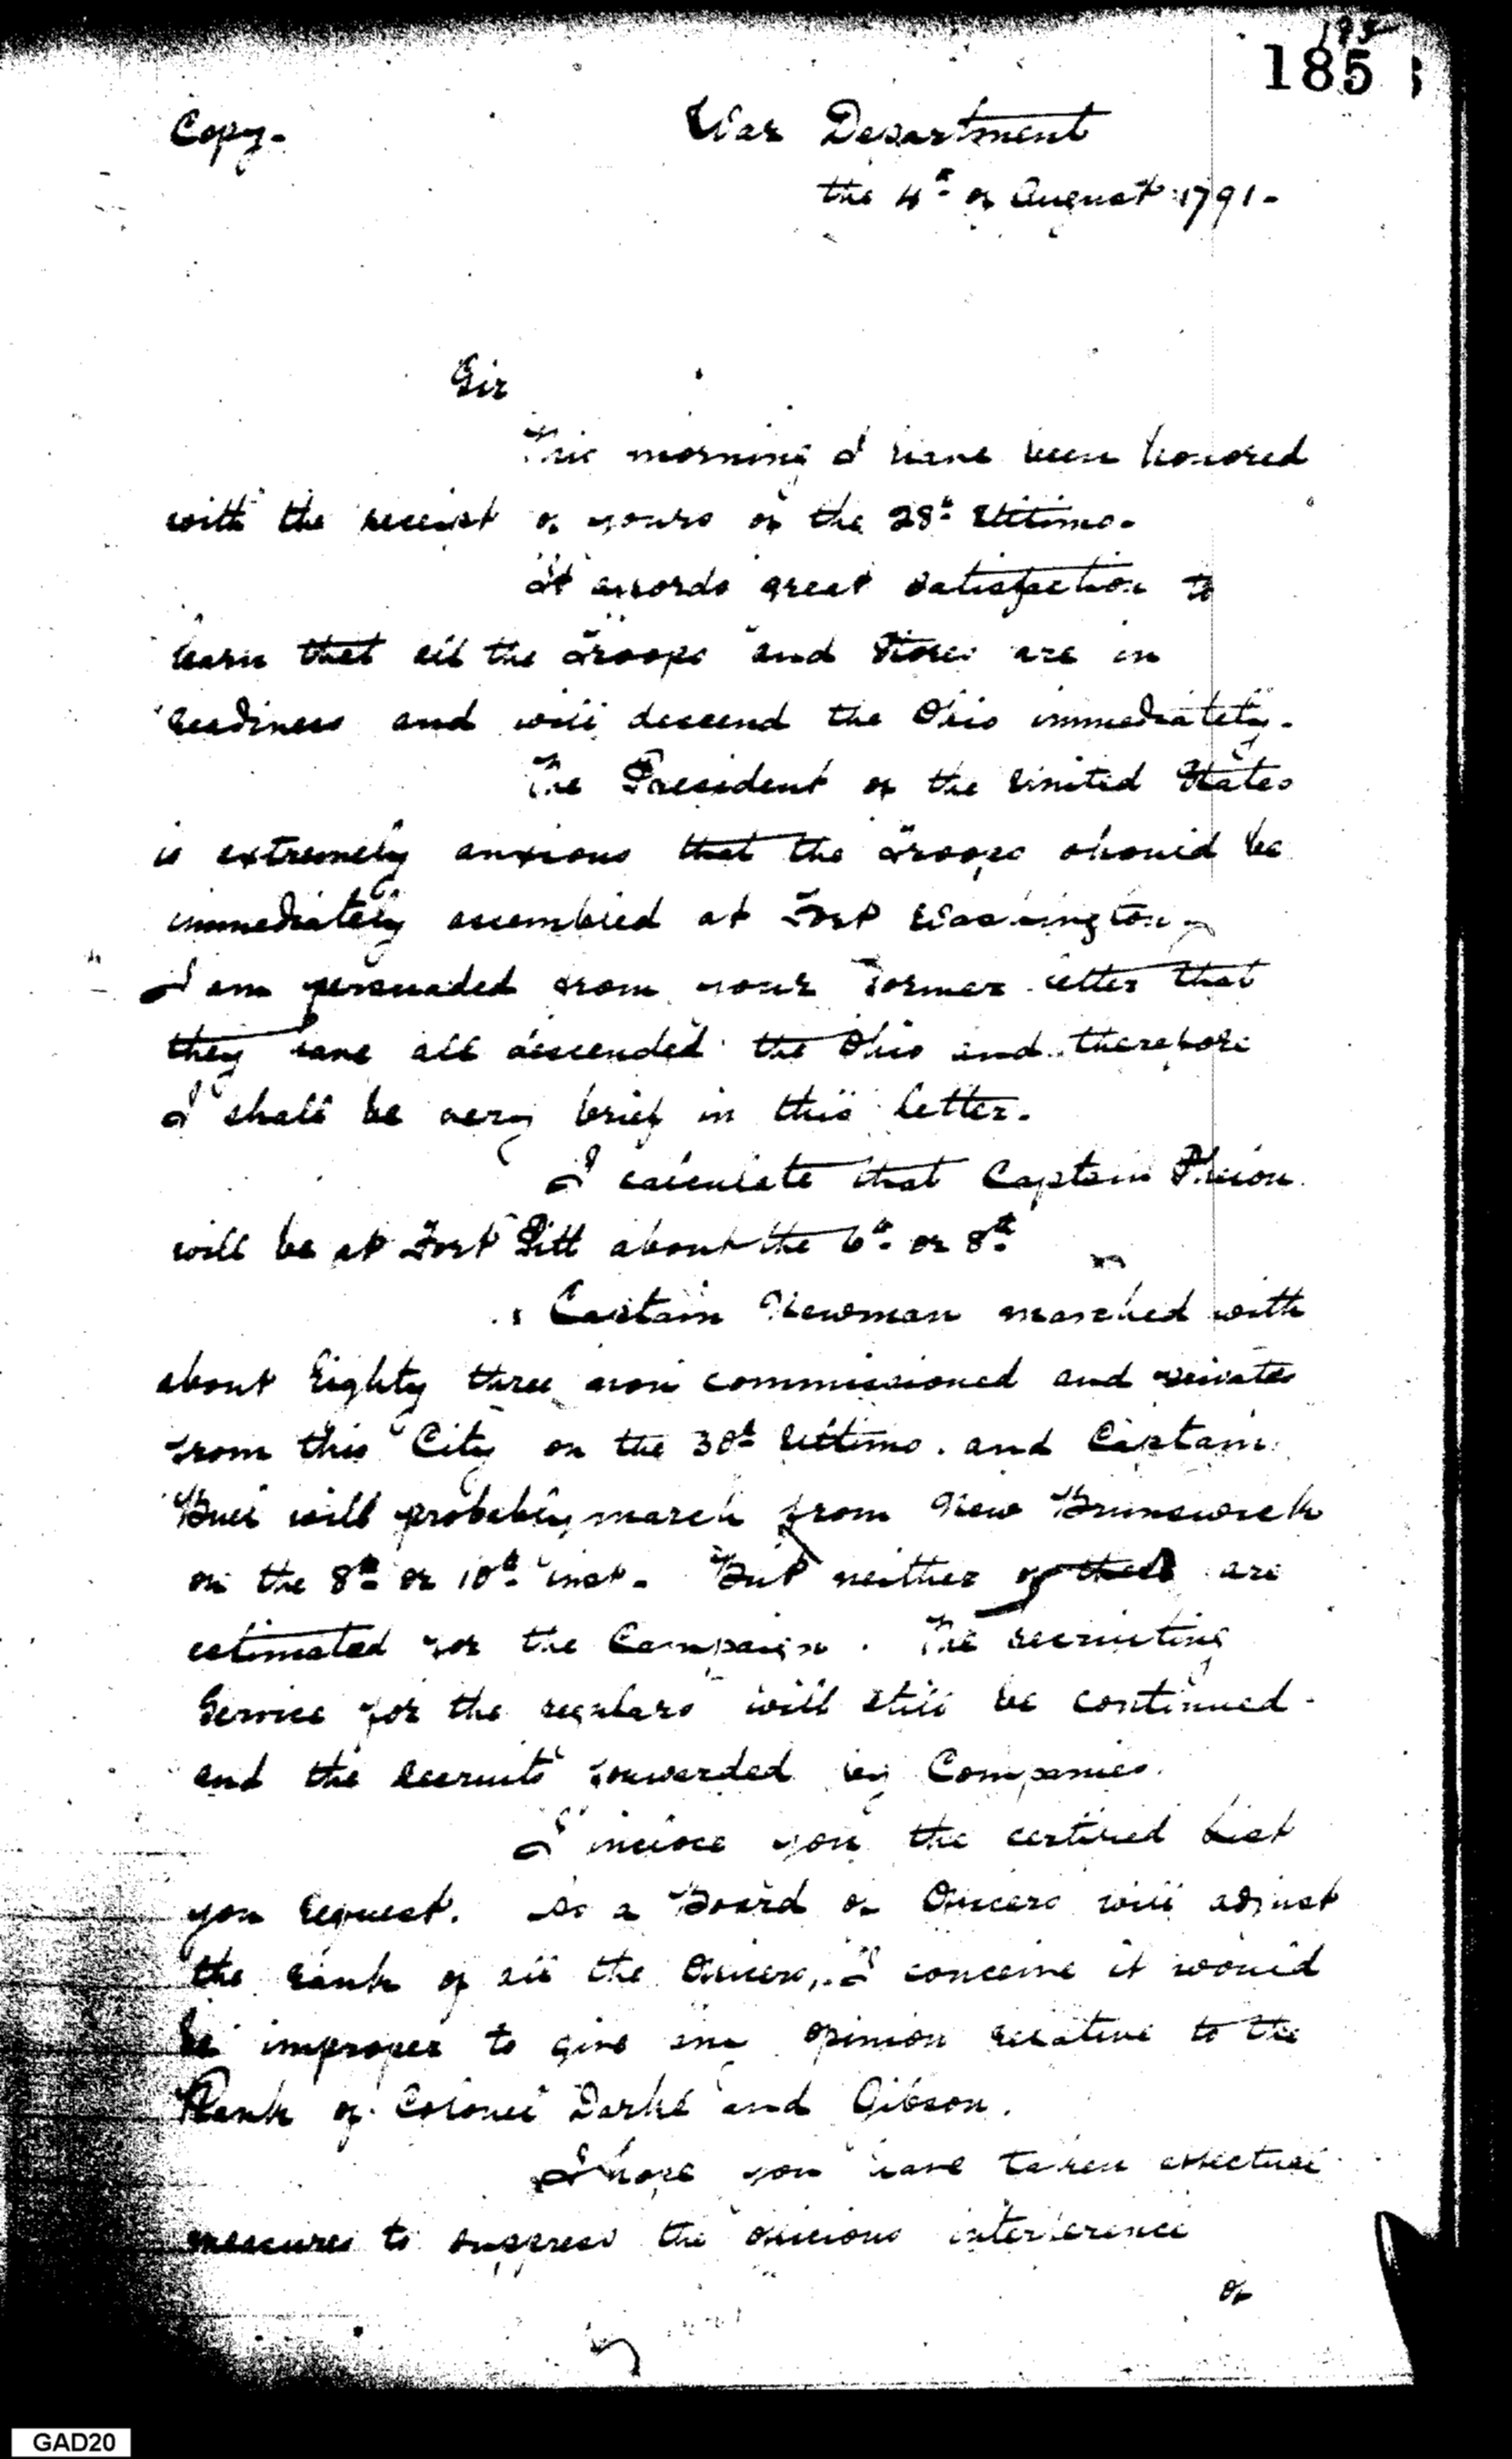 195
185
Copy.
War Department
the 4th of August 1791.
Sir
This morning I have been honored
with the receipt of yours of the 28th Ultimo.
It affords great satisfaction to
learn that all the Troops and Stores are in
readiness and will descend the Ohio immediately.
The President of the United States
is extremely anxious that the Troops should be
immediately assembled at Fort Washington
I am persuaded from your former letter that
they have all descended the Ohio and therefore
I shall be very brief in this letter.
I calculate that Captain Phelon
will be at Fort Pitt about the 6th or 8th
Captain Newman marched with
about Eighty three non commissioned and privates
from this City on the 30th Ultimo. and Captain
Buel will probably march from New Brunswick
on the 8th or 10th inst. But neither of these are
estimated for the Campaign. The recruiting
Service for the regulars will still be continued
and the recruits forwarded by Companies.
I inclose you the certified List
you request. As a Board of Officers will adjust
the rank of all the Officers, I conceive it would
be improper to give an opinion relative to the
Rank of Colonel Darke and Gibson.
I hope you have taken effectual
measures to suppress the officious interference
of
GAD20